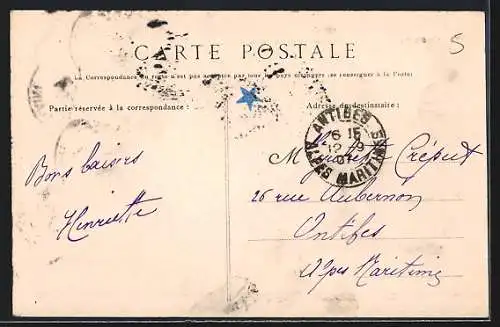 5
CARTE POSTALE
La Correspondance au recto n'est pas acceptée par tous les pays étrangers (se renseigner à la Poste)
Partie réservée à la correspondance :
Adresse du destinataire :
ANTIBES
6 15
12 - 9
07
ALPES MARITIMES
Bons baisers
Henriette
M Créput
26 rue Aubernon
Antibes
Alpes Maritime